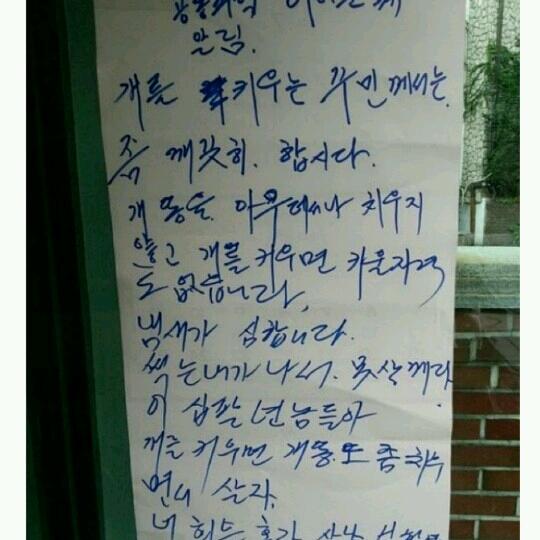 알림.
개를 키우는 주민께서는.
좀 깨끗히. 합시다.
개똥을. 아무데나 치우지
않고 개를 키우면 키울자격
도 없습니다,
냄새가 심합니다.
썩는내가 나서. 못살께다.
이 십팔 년놈들아
개를 키우면 개똥도 좀 치우
면서 살자.
너희들